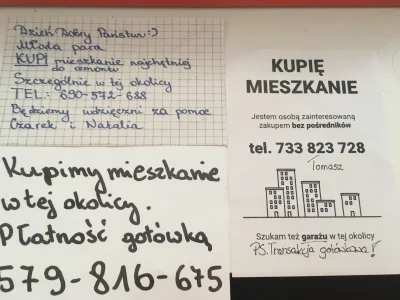 Dzień Dobry Państwu :)
Młoda para
KUPI mieszkanie najchętniej
do remontu
Szczególnie w tej okolicy
TEL: 690-572-688
Będziemy wdzięczni za pomoc
Czarek i Natalia
Kupimy mieszkanie
w tej okolicy.
Płatność gotówką
579-816-675
KUPIĘ
MIESZKANIE
Jestem osobą zainteresowaną
zakupem bez pośredników
tel. 733 823 728
Tomasz
Szukam też garażu w tej okolicy
PS. Transakcja gotówkowa!